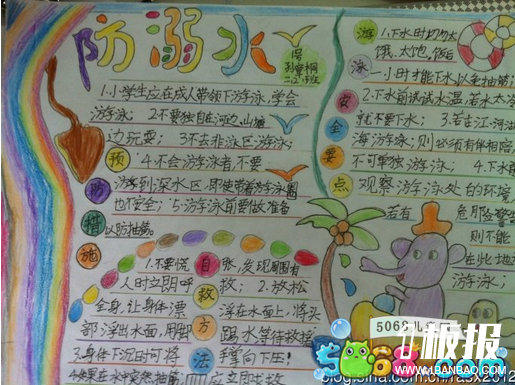 防溺水
1号
二(2)班
预防措施
1.小学生应在成人带领下游泳,学会
游泳; 2.不要独自在河边、山塘
边玩耍; 3.不去非泳区游泳;
4.不会游泳者,不要
游到深水区,即使带着游泳圈
也不安全; 5.游泳前要做准备
以防抽筋。
自救方法
1.不要慌张,发现周围有
人时立即呼救; 2.放松
全身,让身体漂浮在水面上,将头
部浮出水面,用脚踢水等待救援
3.身体下沉时可将手掌向下压!
4.如果在水中突然抽筋
游泳安全要点
1.下水时切勿太
饿、太饱。饭后
一小时才能下水,以免抽筋;
2.下水前试试水温,若水太冷
就不要下水; 3.若在江、河、湖
海游泳,则必须有伴相陪,
不可单独游泳; 4.下水前
观察游泳处的环境,
若有危险警告
则不能
在此地
游泳;
5068儿
5068.com
1板报
WWW.1BANBAO.COM